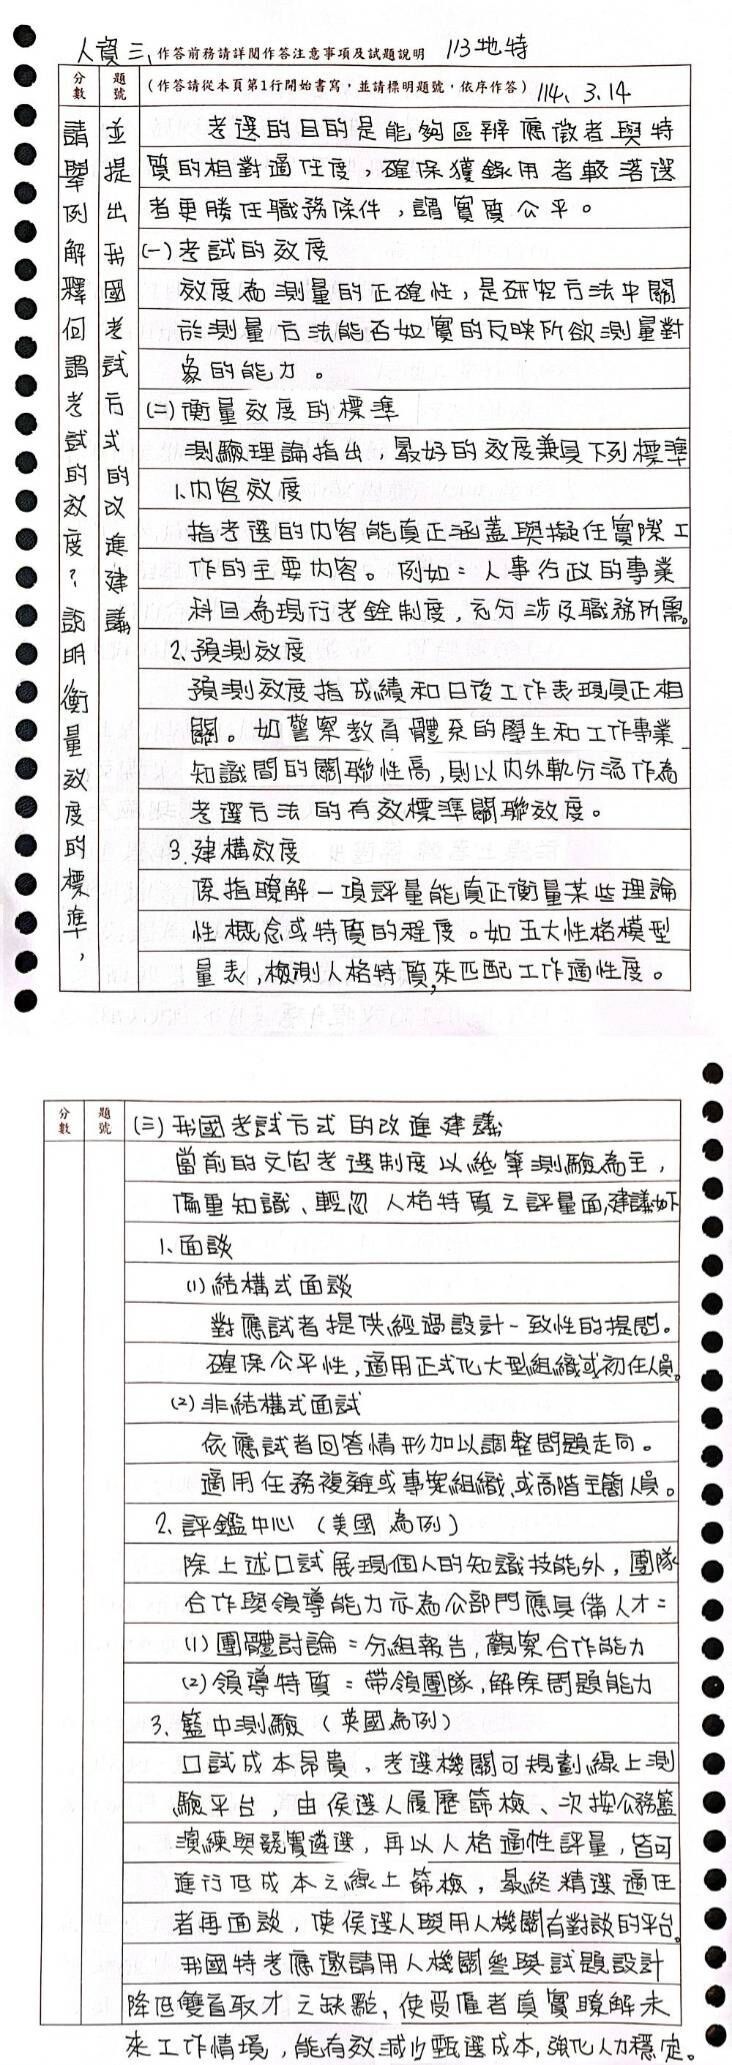 人資三、作答前務請詳閱作答注意事項及試題說明 113地特
分數 題號 (作答請從本頁第1行開始書寫,並請標明題號,依序作答) 114. 3. 14
請舉例解釋何謂考試的效度?說明衡量效度的標準,
並提出我國考試方式的改進建議
考選的目的是能夠區辨應徵者與特
質的相對適任度,確保獲錄用者較落選
者更勝任職務條件,謂實質公平。
(一)考試的效度
效度為測量的正確性,是研究方法中關
於測量方法能否如實的反映所欲測量對
象的能力。
(二)衡量效度的標準
測驗理論指出,最好的效度兼具下列標準
1.內容效度
指考選的內容能真正涵蓋與擬任實際工
作的主要內容。例如:人事行政的專業
科目為現行考銓制度,充分涉及職務所需。
2.預測效度
預測效度指成績和日後工作表現真正相
關。如警察教育體系的學生和工作專業
知識間的關聯性高,則以內外軌分流作為
考選方法的有效標準關聯效度。
3.建構效度
係指瞭解一項評量能真正衡量某些理論
性概念或特質的程度。如五大性格模型
量表,檢測人格特質,來匹配工作適性度。
分數 題號
(三)我國考試方式的改進建議
當前的文官考選制度以紙筆測驗為主,
偏重知識、輕忽人格特質之評量面,建議如下
1、面談
(1)結構式面談
對應試者提供經過設計一致性的提問。
確保公平性,適用正式化大型組織或初任人員。
(2)非結構式面試
依應試者回答情形加以調整問題走向。
適用任務複雜或專案組織、或高階主管人員。
2、評鑑中心(美國為例)
除上述口試展現個人的知識技能外,團隊
合作與領導能力亦為公部門應具備人才:
(1)團體討論:分組報告,觀察合作能力
(2)領導特質:帶領團隊,解除問題能力
3、籃中測驗(英國為例)
口試成本昂貴,考選機關可規劃線上測
驗平台,由侯選人履歷篩檢、次按公務籃
演練與競賽遴選,再以人格適性評量,皆可
進行低成本之線上篩檢,最終精選適任
者再面談,使侯選人與用人機關有對談的平台。
我國特考應邀請用人機關參與試題設計
降低雙盲取才之缺點,使受僱者真實瞭解未
來工作情境,能有效減少甄選成本,強化人力穩定。